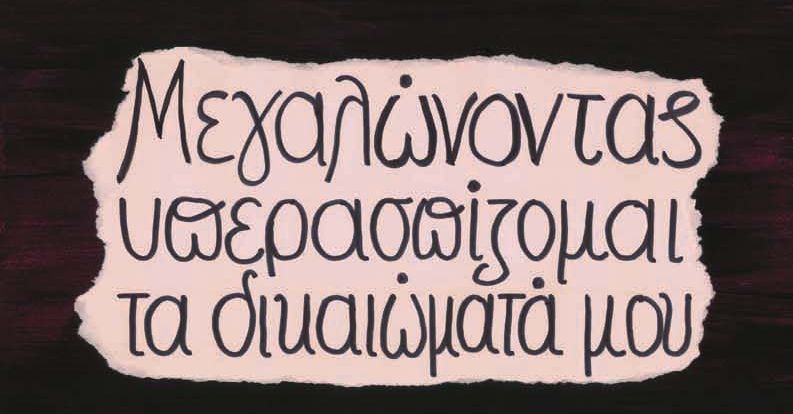 Μεγαλώνοντας
υπερασπίζομαι
τα δικαιώματά μου